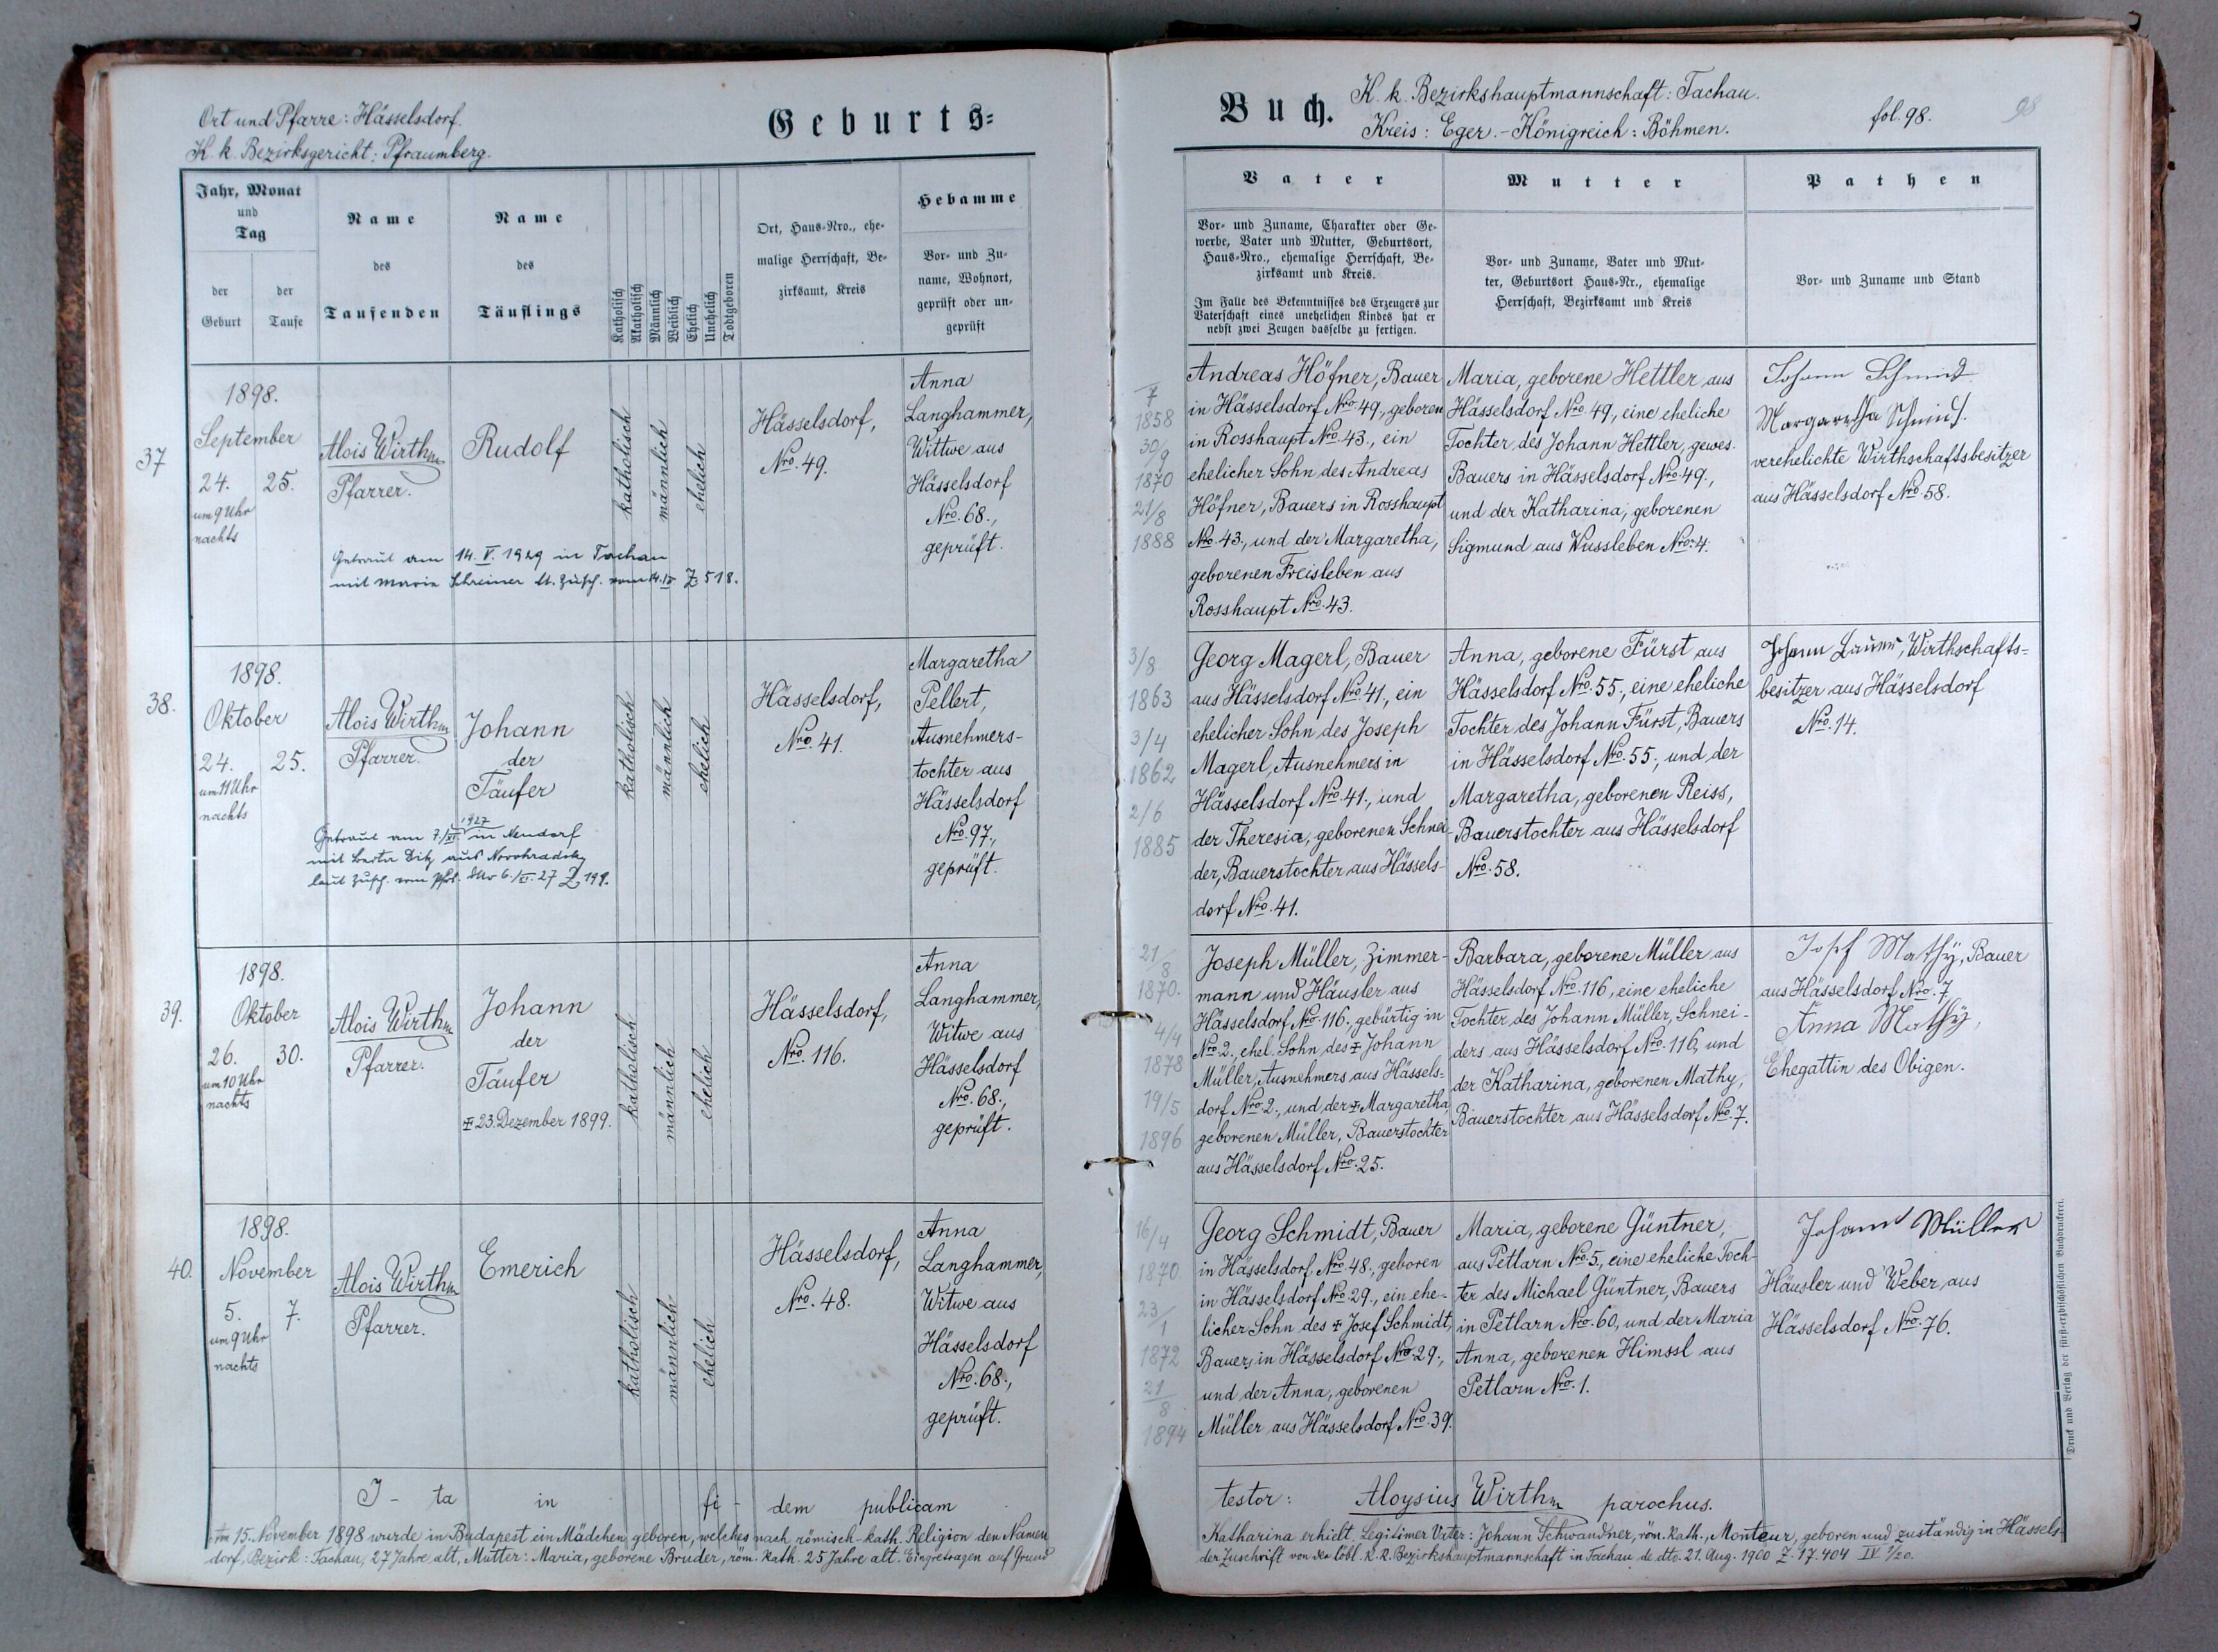 Ort und Pfarre: Hässelsdorf.
K. k. Bezirksgericht: Pfraumberg.
Geburts=
Jahr, Monat
und
Tag
der
Geburt
der
Taufe
Name
des
Taufenden
Name
des
Täuflings
Katholisch
Akatholisch
Männlich
Weiblich
Ehelich
Unehelich
Todtgeboren
Ort, Haus=Nro., ehe=
malige Herrschaft, Be=
zirksamt, Kreis
Hebamme
Vor= und Zu=
name, Wohnort,
geprüft oder un=
geprüft
37
1898.
September
24. 25.
um 9 Uhr
nachts
Alois Wirthm
Pfarrer.
Rudolf
katholisch
männlich
ehelich
Hässelsdorf,
Nro. 49.
Anna
Langhammer,
Wittwe aus
Hässelsdorf
Nro. 68.,
geprüft.
Getraut am 14. V. 1929 in Tachau
mit Marie Schreiner lt. Zusch. vom 14. V Z 518.
38.
1898.
Oktober
24. 25.
um 11 Uhr
nachts
Alois Wirthm
Pfarrer.
Johann
der
Täufer
katholisch
männlich
ehelich
Hässelsdorf,
Nro. 41.
Margaretha
Pellert,
Ausnehmers-
tochter aus
Hässelsdorf
Nro. 97.,
geprüft.
1927
Getraut am 7./XI. in Neudorf
mit Berta aus
laut Zusch. vom 6./XI. 27 Z 199.
39.
1898.
Oktober
26. 30.
um 10 Uhr
nachts
Alois Wirthm
Pfarrer.
Johann
der
Täufer
‡ 23. Dezember 1899.
katholisch
männlich
ehelich
Hässelsdorf,
Nro. 116.
Anna
Langhammer,
Witwe aus
Hässelsdorf
Nro. 68.,
geprüft.
40.
1898.
November
5. 7.
um 9 Uhr
nachts
Alois Wirthm
Pfarrer.
Emerich
katholisch
männlich
ehelich
Hässelsdorf,
Nro. 48.
Anna
Langhammer,
Witwe aus
Hässelsdorf
Nro. 68.,
geprüft.
I - ta in fi - dem publicam
Am 15. November 1898 wurde in Budapest ein Mädchen geboren, welches nach römisch-kath. Religion den Namen
dorf, Bezirk: Tachau, 27 Jahre alt, Mutter: Maria, geborene Bruder, röm. kath. 25 Jahre alt. Eingetragen auf Grund
Buch.
K. k. Bezirkshauptmannschaft: Tachau.
Kreis: Eger. - Königreich: Böhmen.
fol. 98.
98
Vater
Vor= und Zuname, Charakter oder Ge=
werbe, Vater und Mutter, Geburtsort,
Haus=Nro., ehemalige Herrschaft, Be=
zirksamt und Kreis.
Im Falle des Bekenntnisses des Erzeugers zur
Vaterschaft eines unehelichen Kindes hat er
nebst zwei Zeugen dasselbe zu fertigen.
Mutter
Vor= und Zuname, Vater und Mut=
ter, Geburtsort Haus=Nr., ehemalige
Herrschaft, Bezirksamt und Kreis
Pathen
Vor= und Zuname und Stand
7
1858
30/9
1870
21/8
1888
Andreas Höfner, Bauer
in Hässelsdorf Nro. 49., geboren
in Rosshaupt Nro. 43., ein
ehelicher Sohn des Andreas
Höfner, Bauers in Rosshaupt
Nro. 43., und der Margaretha,
geborenen Freisleben aus
Rosshaupt Nro. 43.
Maria, geborene Hettler, aus
Hässelsdorf Nro. 49., eine eheliche
Tochter des Johann Hettler, gewes.
Bauers in Hässelsdorf Nro. 49.,
und der Katharina, geborenen
Sigmund aus Wussleben Nro. 4.
Johann Schmid
Margaretha Schmid.
verehelichte Wirthschaftsbesitzer
aus Hässelsdorf Nro. 58.
3/8
1863
3/4
1862
2/6
1885
Georg Magerl, Bauer
aus Hässelsdorf Nro. 41., ein
ehelicher Sohn des Joseph
Magerl, Ausnehmers in
Hässelsdorf Nro. 41., und
der Theresia, geborenen Schnei-
der, Bauerstochter aus Hässels-
dorf Nro. 41.
Anna, geborene Fürst aus
Hässelsdorf Nro. 55., eine eheliche
Tochter des Johann Fürst, Bauers
in Hässelsdorf Nro. 55., und der
Margaretha, geborenen Reiss,
Bauerstochter aus Hässelsdorf
Nro. 58.
Johann Wirthschafts=
besitzer aus Hässelsdorf
Nro. 14.
21/8
1870.
4/4
1878
19/5
1896
Joseph Müller, Zimmer-
mann und Häusler aus
Hässelsdorf Nro. 116., gebürtig in
Nro 2., ehel. Sohn des ‡ Johann
Müller, Ausnehmers aus Hässels=
dorf Nro 2., und der ‡ Margaretha,
geborenen Müller, Bauerstochter
aus Hässelsdorf Nro. 25.
Barbara, geborene Müller aus
Hässelsdorf Nro. 116, eine eheliche
Tochter des Johann Müller, Schnei-
ders aus Hässelsdorf Nro. 116, und
der Katharina, geborenen Mathy,
Bauerstochter aus Hässelsdorf Nro. 7.
Josef Mathy, Bauer
aus Hässelsdorf Nro. 7
Anna Mathy,
Ehegattin des Obigen.
16/4
1870.
23/1
1872
21/8
1894
Georg Schmidt, Bauer
in Hässelsdorf Nro. 48., geboren
in Hässelsdorf Nro 29., ein ehe-
licher Sohn des ‡ Josef Schmidt,
Bauers in Hässelsdorf Nro 29.,
und der Anna, geborenen
Müller aus Hässelsdorf Nro. 39.
Maria, geborene Güntner,
aus Petlarn Nro. 5., eine eheliche Toch-
ter des Michael Güntner, Bauers
in Petlarn Nro. 60, und der Maria
Anna, geborenen Himssl aus
Petlarn Nro. 1.
Johann Müller
Häusler und Weber, aus
Hässelsdorf Nro. 76.
testor: Aloysius Wirthm parochus.
Katharina erhielt. Legitimer Vater: Johann Schwandner, röm. kath., Monteur, geboren und zuständig in Hässels-
der Zuschrift von der löbl. k. k. Bezirkshauptmannschaft in Tachau de dto. 21. Aug. 1900 Z. 17.404 IV 7/20.
Druck und Verlag der fürst=erzbischöflichen Buchdruckerei.